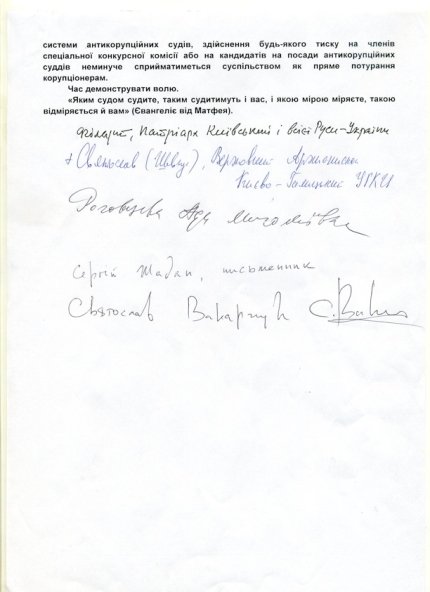 системи антикорупційних судів, здійснення будь-якого тиску на членів
спеціальної конкурсної комісії або на кандидатів на посади антикорупційних
суддів неминуче сприйматиметься суспільством як пряме потурання
корупціонерам.
Час демонструвати волю.
«Яким судом судите, таким судитимуть і вас, і якою мірою міряєте, такою
відміряється й вам» (Євангеліє від Матфея).
Філарет, Патріарх Київський і всієї Руси-України
+ Святослав (Шевчук), Верховний Архиєпископ
Києво-Галицький УГКЦ
Роговцева Ада Миколаївна
Сергій Жадан, письменник
Святослав Вакарчук